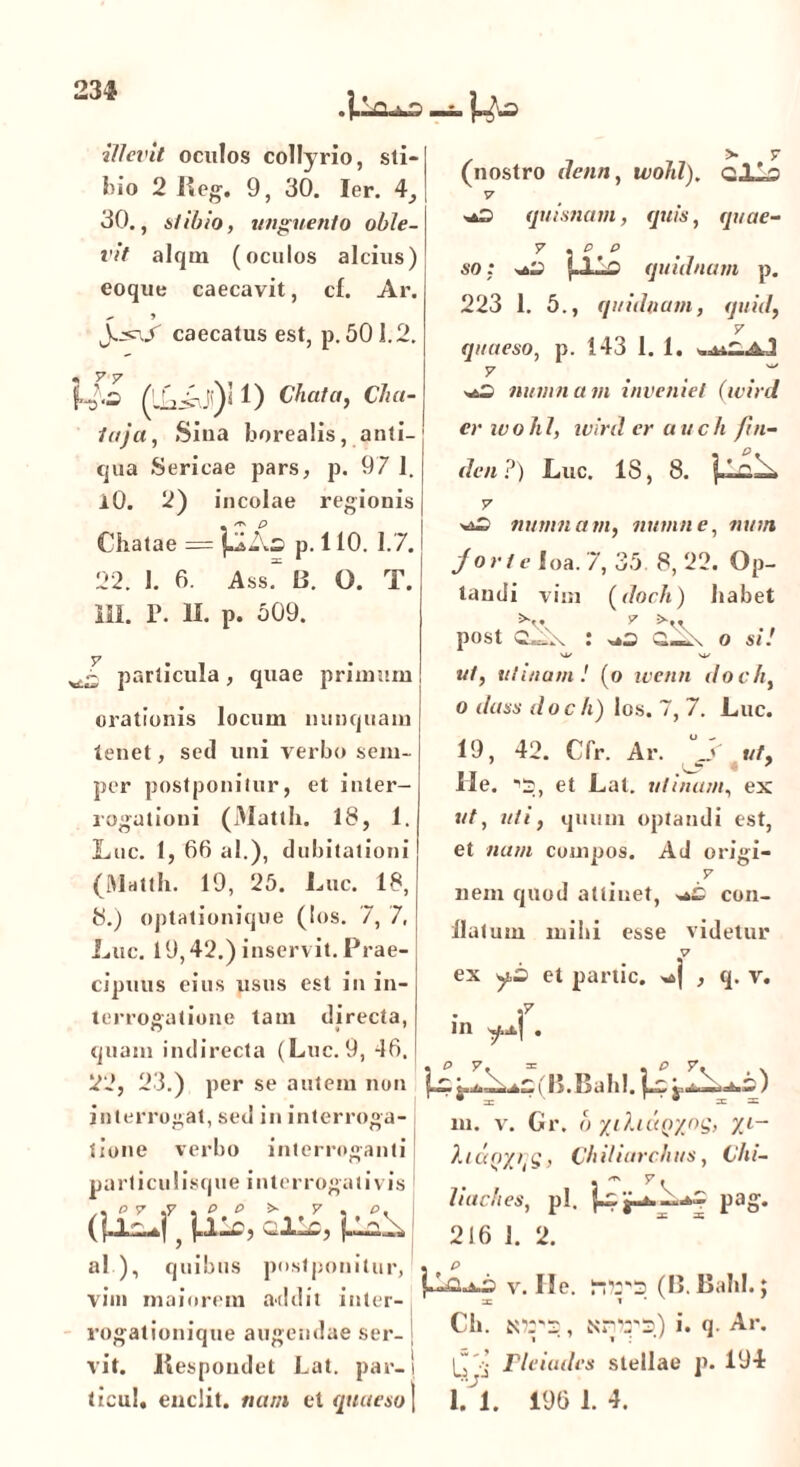 234
illevit oculos collyrio, sti-
bio 2 Reg. 9, 30. Ier. 4,
30., stibio, unguento oble-
vit alqm (oculos alcius)
eoque caecavit, cf. Ar.
caecatus est, p. 50 l. 2.
1) Chata, Cha-
taja, Sina borealis, anti-
qua Sericae pars, p. 97 l.
10. 2) incolae regionis
Chatae = p. 110. l. 7.
22. l. 6. Ass. B. O. T.
III. P. II. p. 509.
particula, quae primum
orationis locum nunquam
tenet, sed uni verbo sem-
per postponitur, et inter-
rogationi (Matth. 18, 1.
Luc. 1, 66 al.), dubitationi
(Matth. 19, 25. Luc. 18,
8.) optationique (Ios. 7, 7,
Luc. 19, 42.) inservit. Prae-
cipuus eius usus est in in-
terrogatione tam directa,
quam indirecta (Luc. 9, 46.
22, 23.) per se autem non
interrogat, sed in interroga-
tione verbo interroganti
particulisque interrogativis
al.), quibus postponitur,
vim maiorem addit inter-
rogationique augendae ser-
vit. Respondet Lat. par-
ticul. enclit. nam et quaeso
(nostro denn, wohl). ܟܝ ܡܢܘ
quisnam, quis, quae-
so; quidnam p.
223 l. 5., quidnam, quid,
quaeso, p. 143 l. 1.
numnam inveniet (wird
er wohl, wird er auch fin-
den?) Luc. 18, 8.
numnam, numne, num
forte Ioa. 7, 35. 8, 22. Op-
tandi vim (doch) habet
post : o si!
ut, utinam! (o wenn doch,
o dass doch) Ios. 7, 7. Luc.
19, 42. Cfr. Ar. كي ut,
He. כי, et Lat. utinam, ex
ut, uti, quum optandi est,
et nam compos. Ad origi-
nem quod attinet, con-
flatum mihi esse videtur
ex et partic. , q. v.
in
(B. Bahl.
m. v. Gr. ὁ χιλιάρχος, χι-
λιάρχης, Chiliarchus, Chi-
liaches, pl. pag.
216 l. 2.
v. He. כימה (B. Bahl.;
Ch. כימא, כימתא) i. q. Ar.
Pleiades stellae p. 194
l. 1. 196 l. 4.